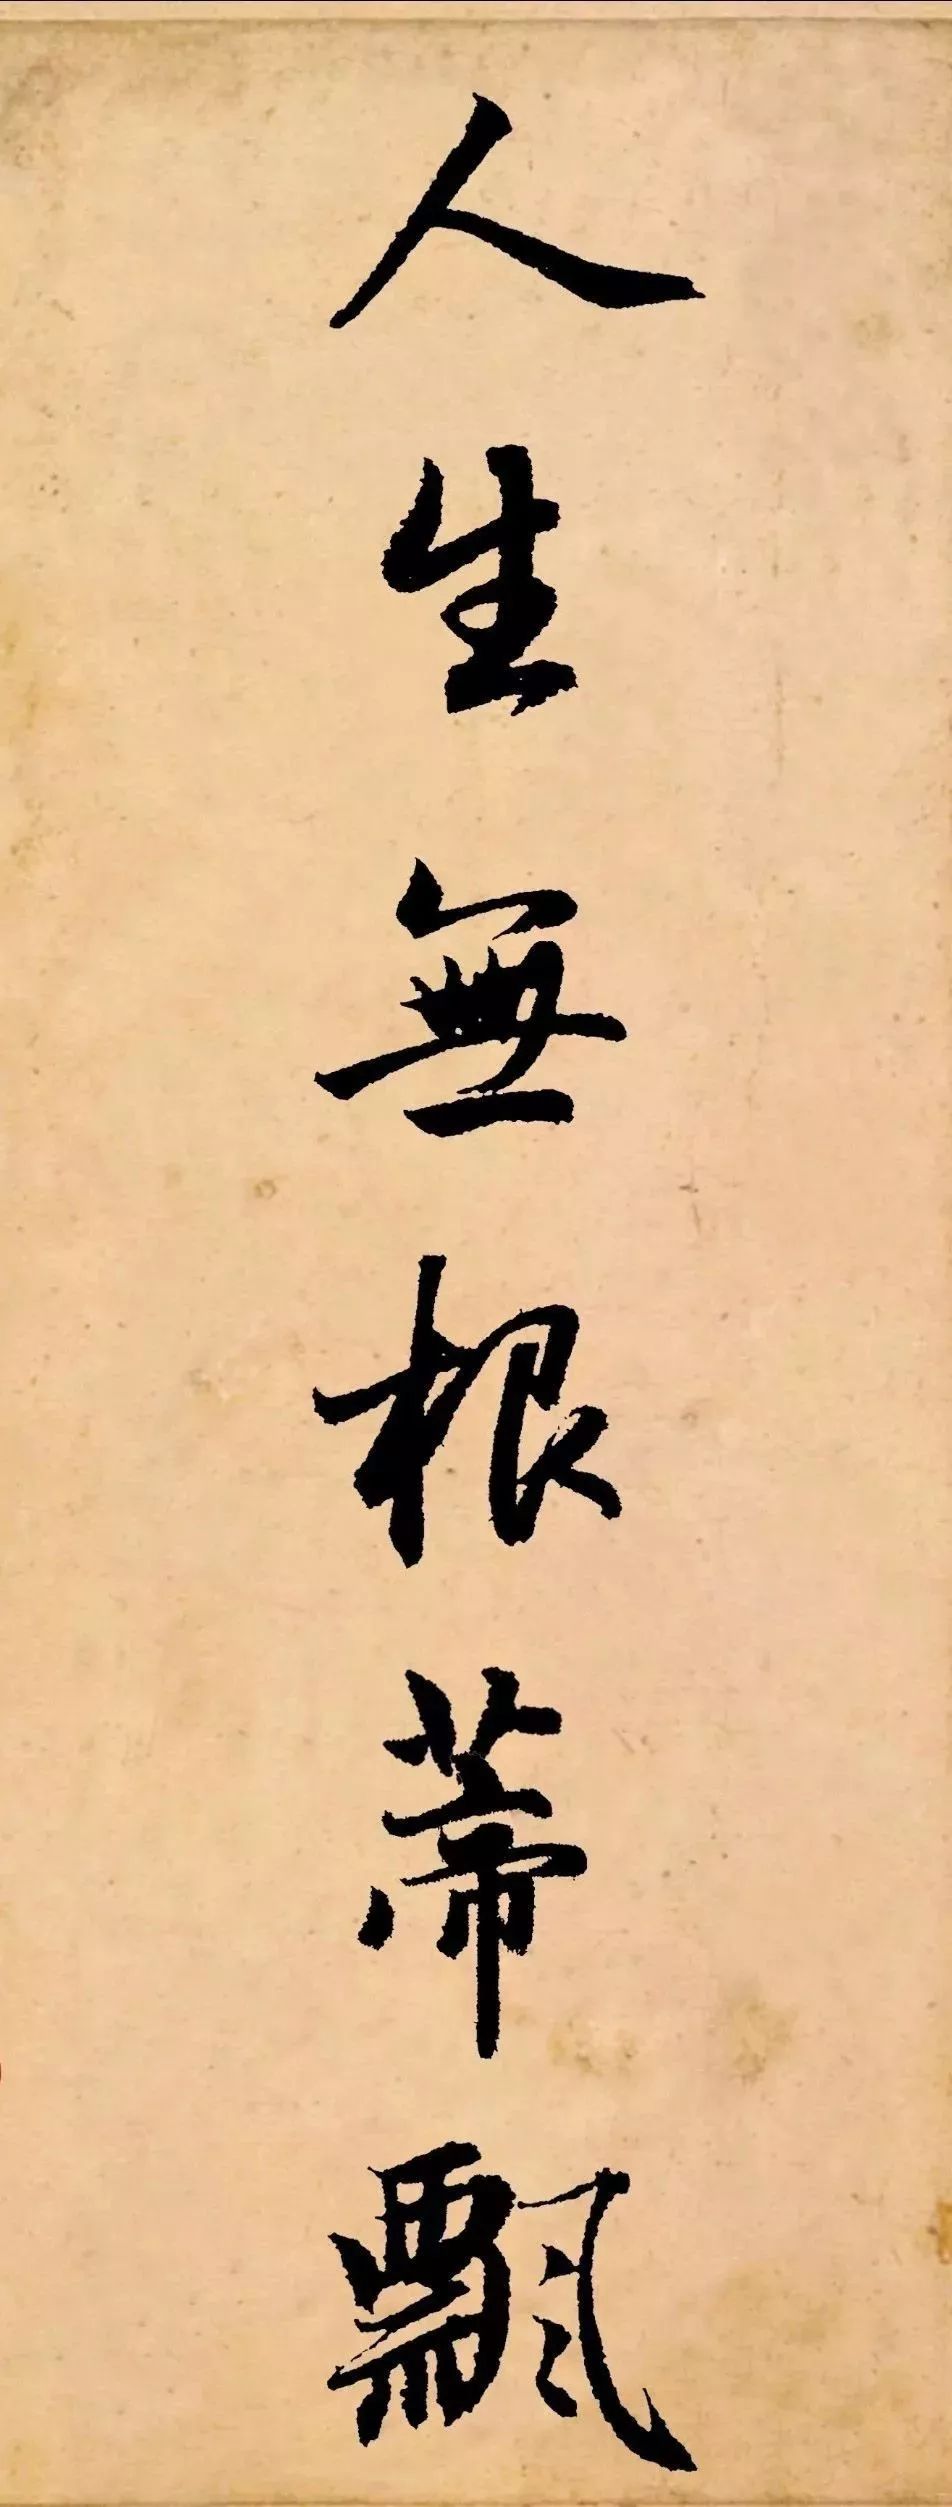 人生無根蒂飄